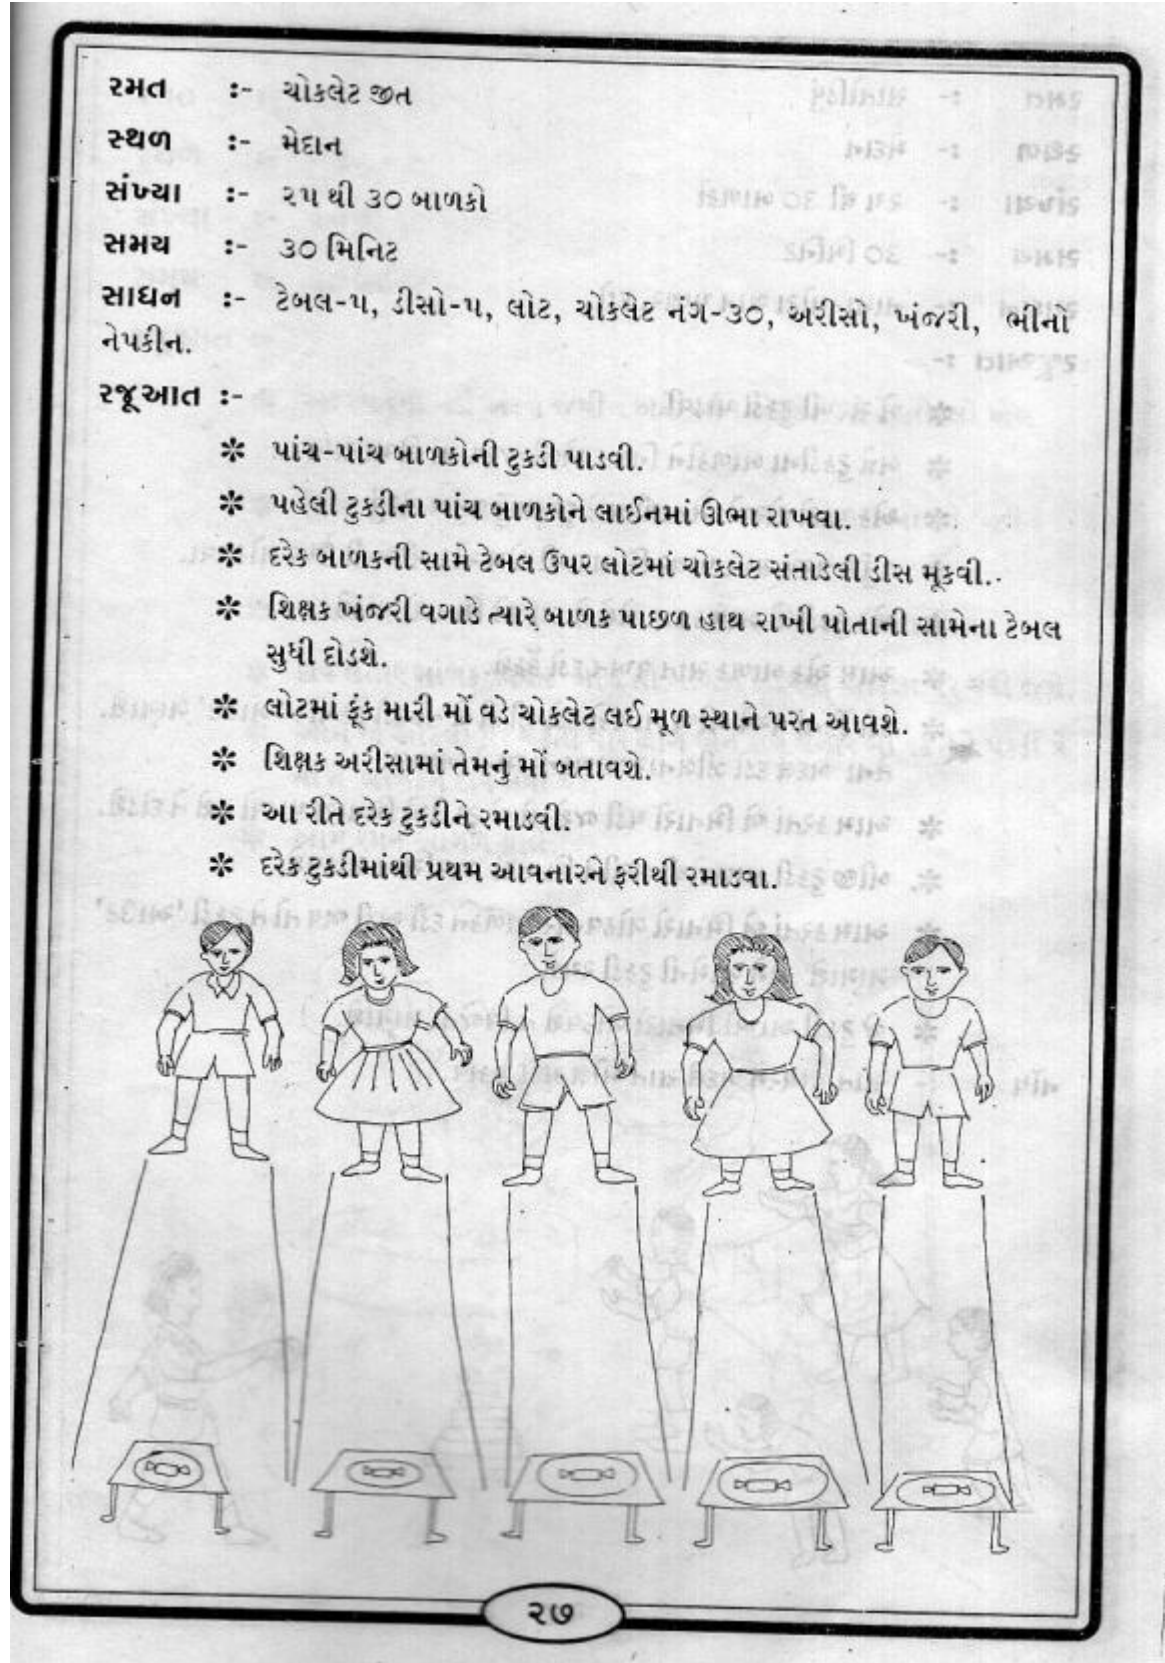 રમત :- ચોકલેટ જીત
સ્થળ :- મેદાન
સંખ્યા :- ૨૫ થી ૩૦ બાળકો
સમય :- ૩૦ મિનિટ
સાધન :- ટેબલ-૫, ડીસો-૫, લોટ, ચોકલેટ નંગ-૩૦, અરીસો, ખંજરી, ભીનો
નેપકીન.
રજૂઆત :-
✻ પાંચ-પાંચ બાળકોની ટુકડી પાડવી.
✻ પહેલી ટુકડીના પાંચ બાળકોને લાઈનમાં ઊભા રાખવા.
✻ દરેક બાળકની સામે ટેબલ ઉપર લોટમાં ચોકલેટ સંતાડેલી ડીસ મૂકવી.
✻ શિક્ષક ખંજરી વગાડે ત્યારે બાળક પાછળ હાથ રાખી પોતાની સામેના ટેબલ
સુધી દોડશે.
✻ લોટમાં ફૂંક મારી મોં વડે ચોકલેટ લઈ મૂળ સ્થાને પરત આવશે.
✻ શિક્ષક અરીસામાં તેમનું મોં બતાવશે.
✻ આ રીતે દરેક ટુકડીને રમાડવી.
✻ દરેક ટુકડીમાંથી પ્રથમ આવનારને ફરીથી રમાડવા.
૨૭